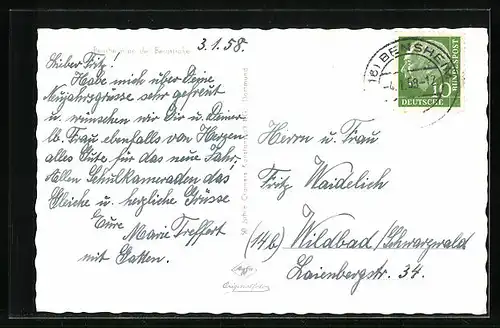 Bensheim an der Bergstraße
3.1.58.
Lieber Fritz!
Habe mich über Deine
Neujahrsgrüsse sehr gefreut
u. wünschen wir Dir u. Deiner
lb. Frau ebenfalls von Herzen
alles Gute für das neue Jahr,
Allen Schulkameraden das
Gleiche u. herzliche Grüsse
Eure
Marie Treffert
mit Gatten.
(16) BENSHEIM
-4.1.58-17
10
DEUTSCHE
BUNDESPOST
Herrn u. Frau
Fritz Waidelich
(14b) Wildbad/Schwarzwald
Laienbergstr. 34.
30 Jahre Cramers Kunstanstalt Dortmund
Agfa
Originalfoto